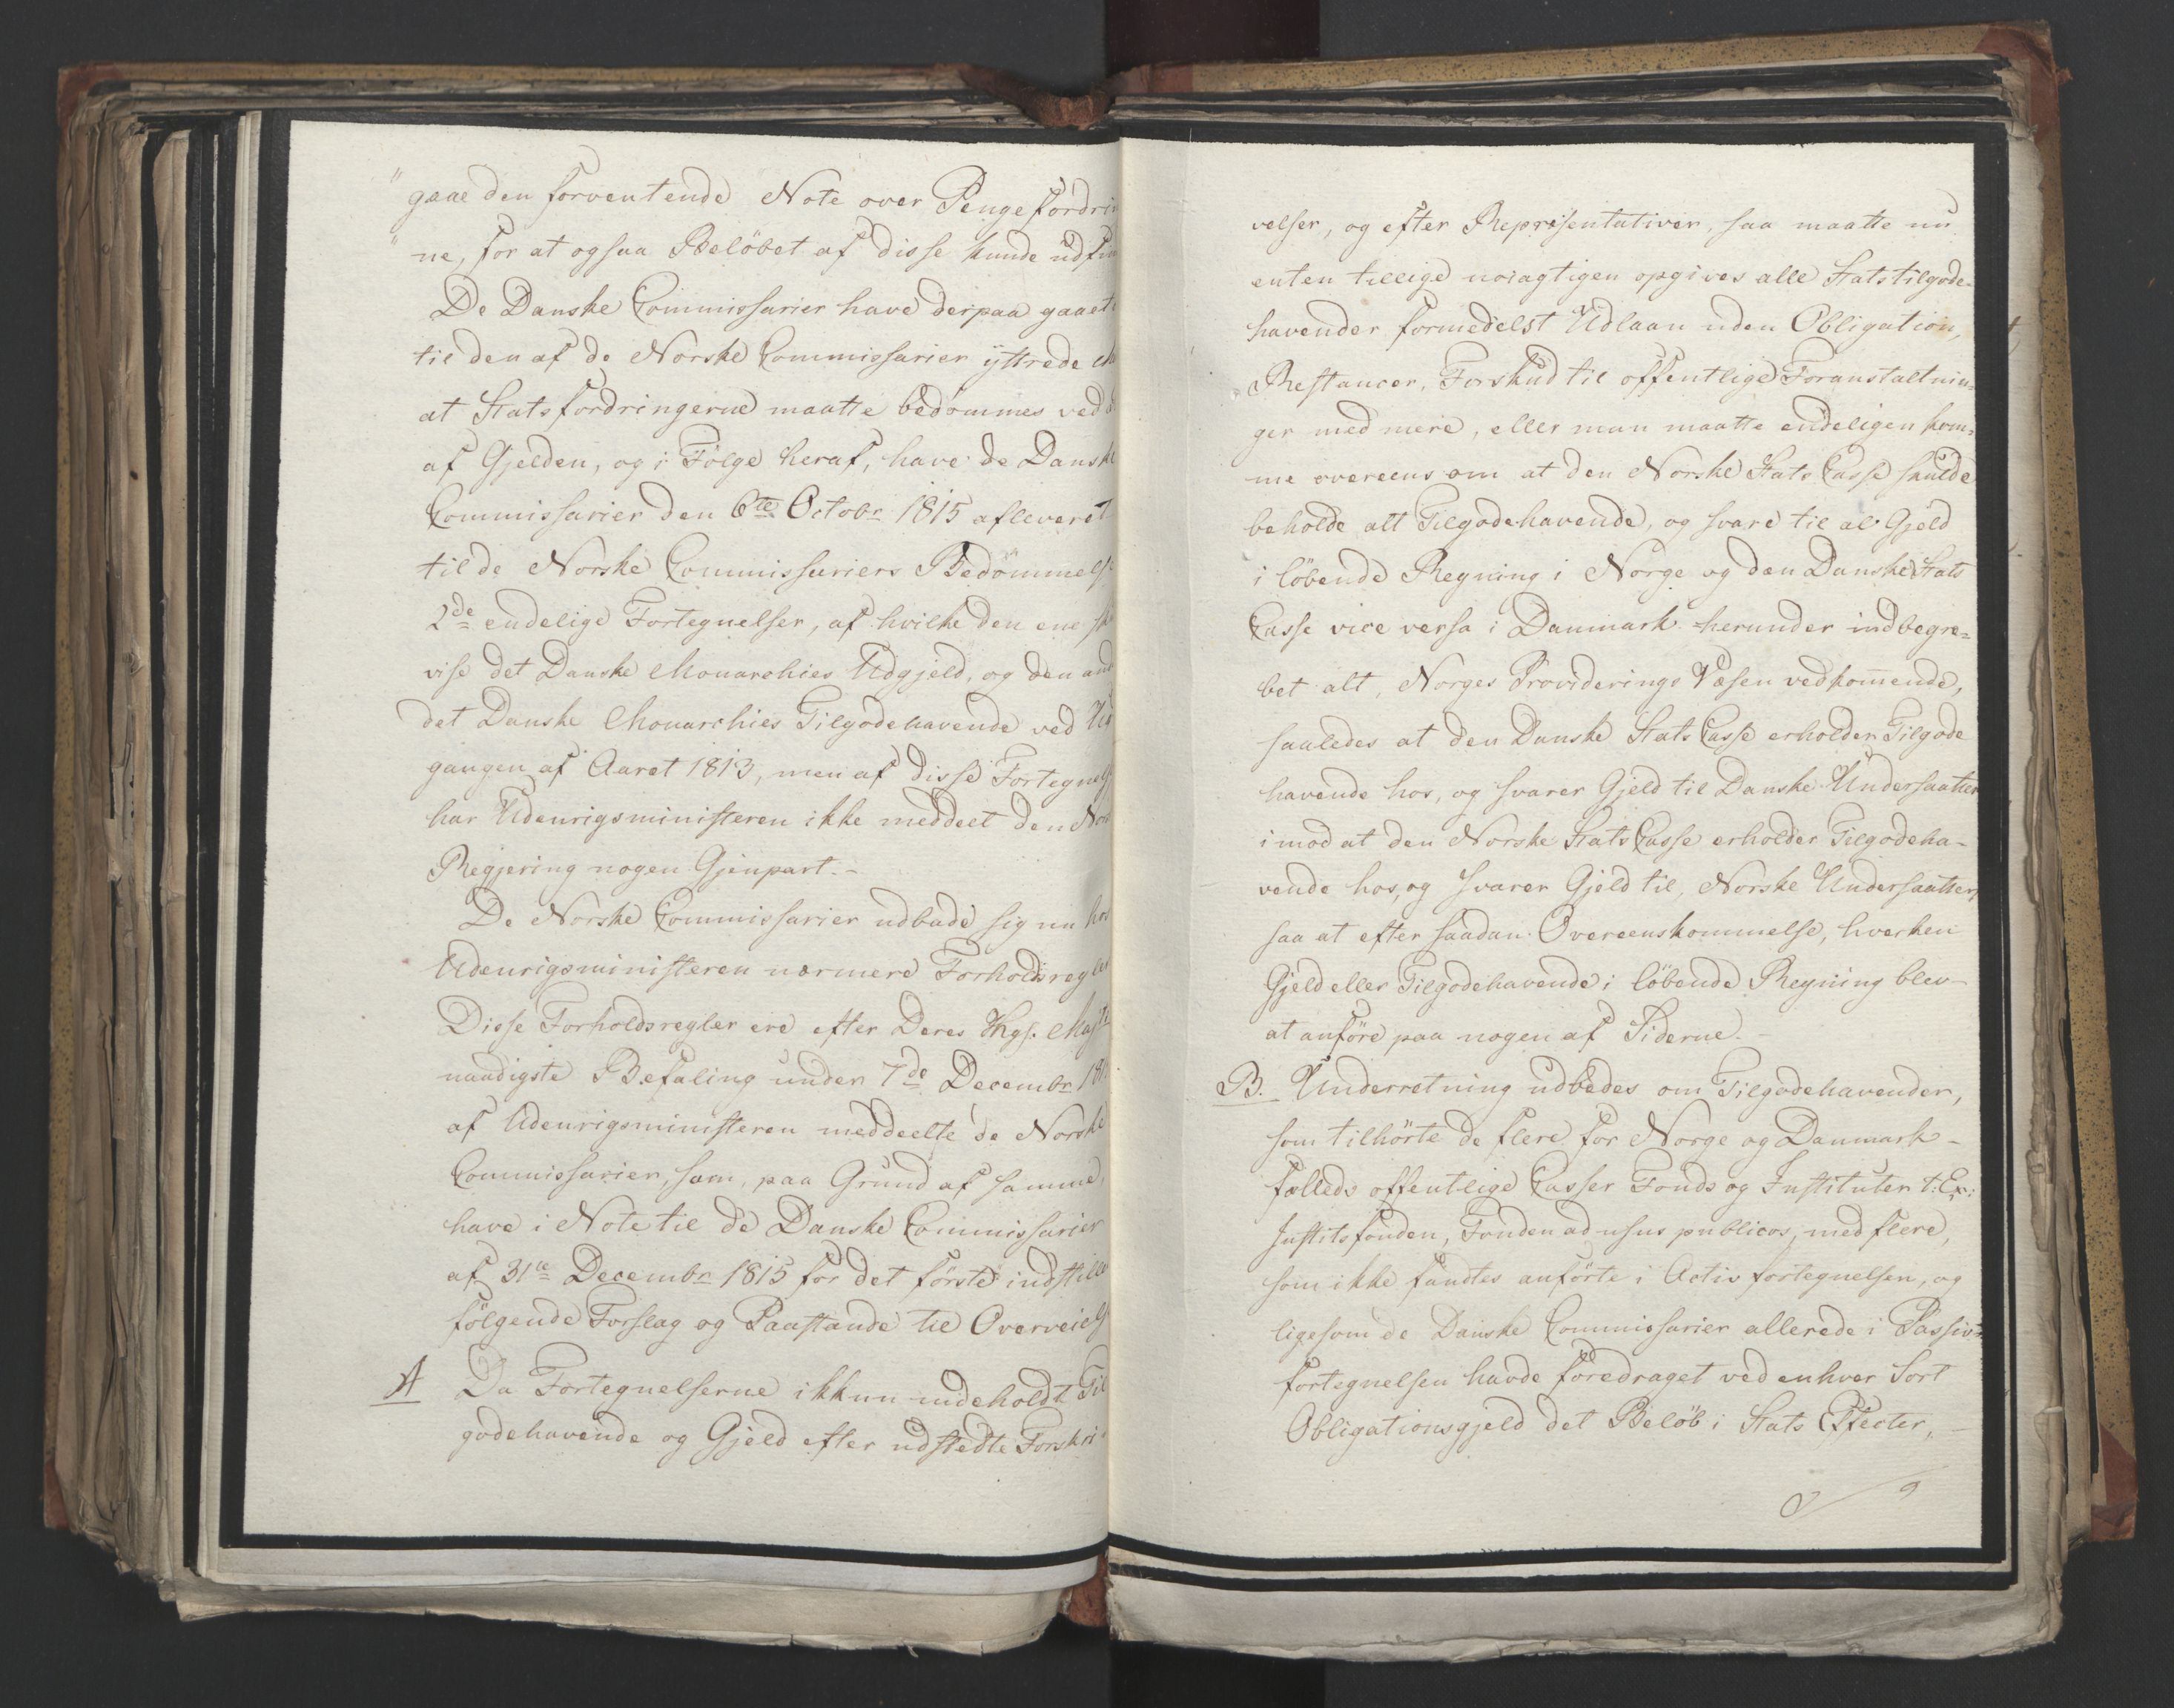 " gaae den forventende Note over Pengefordrin
" ne, for at ogsaa Belöbet af disse kunde udfin
De Danske Commissarier have derpaa gaaet
til den af de Norske Commissarier yttrede
at Statsfordringerne maatte bedömmes ved
af Gjelden, og i Fölge heraf, have de Danske
Commissarier den 6te Octobr 1815 afleveret
til de Norske Commissariers Bedömmelse
2de endelige Fortegnelser, af hvilke den ene
vise det Danske Monarchies Udgjeld, og den and
det Danske Monarchies Tilgodehavende ved Ud
gangen af Aaret 1813, men af disse Fortegnels
har Udenrigsministeren ikke meddeelt den Nors
Regjering nogen Gjenpart.-
De Norske Commissarier udbade sig nu hos
Udenrigsministeren nærmere Forholdsregler
Disse Forholdsregler ere efter Deres Kgs. Majts
naadigste Befaling under 7de Decembr 181
af Udenrigsministeren meddeelte de Norske
Commissarier, som, paa Grund af samme,
have i Note til de Danske Commissarier
af 31te Decembr 1815 for det förste indstillet
fölgende Forslag og Paastande til Overveielse
A Da Fortegnelserne ikkun indeholdt Til
godehavende og Gjeld efter udstedte Forskri
velser, og efter Repræsentativer, saa maatte nu
enten tillige noiagtigen opgives alle Statstilgode-
havender formedelst Udlaan uden Obligation,
Restancer, Forskud til offentlige Foranstaltnin-
ger med mere, eller man maatte endeligen kom-
me overeens om at den Norske Stats Casse skulde
beholde alt Tilgodehavende, og svare til al Gjeld
i löbende Regning i Norge og den Danske Stats
Casse vice versa i Danmark herunder indbegre-
bet alt, Norges Providerings Væsen vedkommende,
saaledes at den Danske Stats Casse erholder Tilgode
havende hos, og svarer Gjeld til Danske Undersaatter
imod at den Norske Stats Casse erholder Tilgodeha-
vende hos, og svarer Gjeld til, Norske Undersaatter,
saa at efter saadan Overeenskommelse, hverken
Gjeld eller Tilgodehavende i löbende Regning blev
at anföre paa nogen af Siderne.
B. Underretning udbedes om Tilgodehavender,
som tilhörte de flere for Norge og Danmark-
fælleds offentlige Casser Fonds og Instituter t: Ex:
Justitsfonden, Fonden ad usus publicos, med flere,
som ikke fandtes anförte i Activ fortegnelsen, og
ligesom de Danske Commissarier allerede i Passiv-
fortegnelsen havde foredraget ved enhver Sort
Obligationsgjeld det Belöb i Stats Effecter,